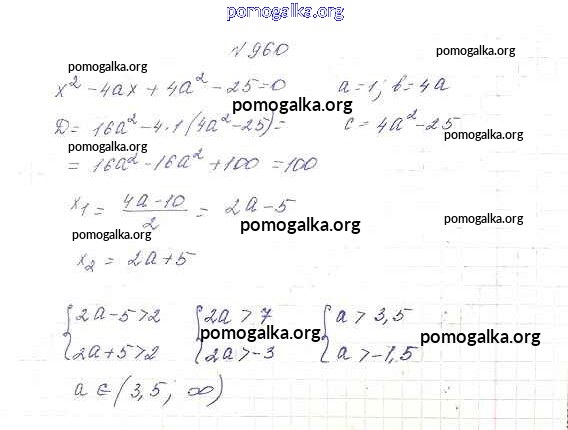 pomogalka.org
№960
pomogalka.org
pomogalka.org
x² - 4ax + 4a² - 25 = 0 a = 1; b = 4a
pomogalka.org
D = 16a² - 4·1(4a² - 25) = c = 4a² - 25
pomogalka.org
pomogalka.org
= 16a² - 16a² + 100 = 100
x₁ = (4a - 10)/2 = 2a - 5
pomogalka.org
pomogalka.org
pomogalka.org
x₂ = 2a + 5
{2a - 5 > 2 {2a > 7 {a > 3,5
pomogalka.org
pomogalka.org
{2a + 5 > 2 {2a > -3 {a > -1,5
a ∈ (3,5; ∞)
pomogalka.org